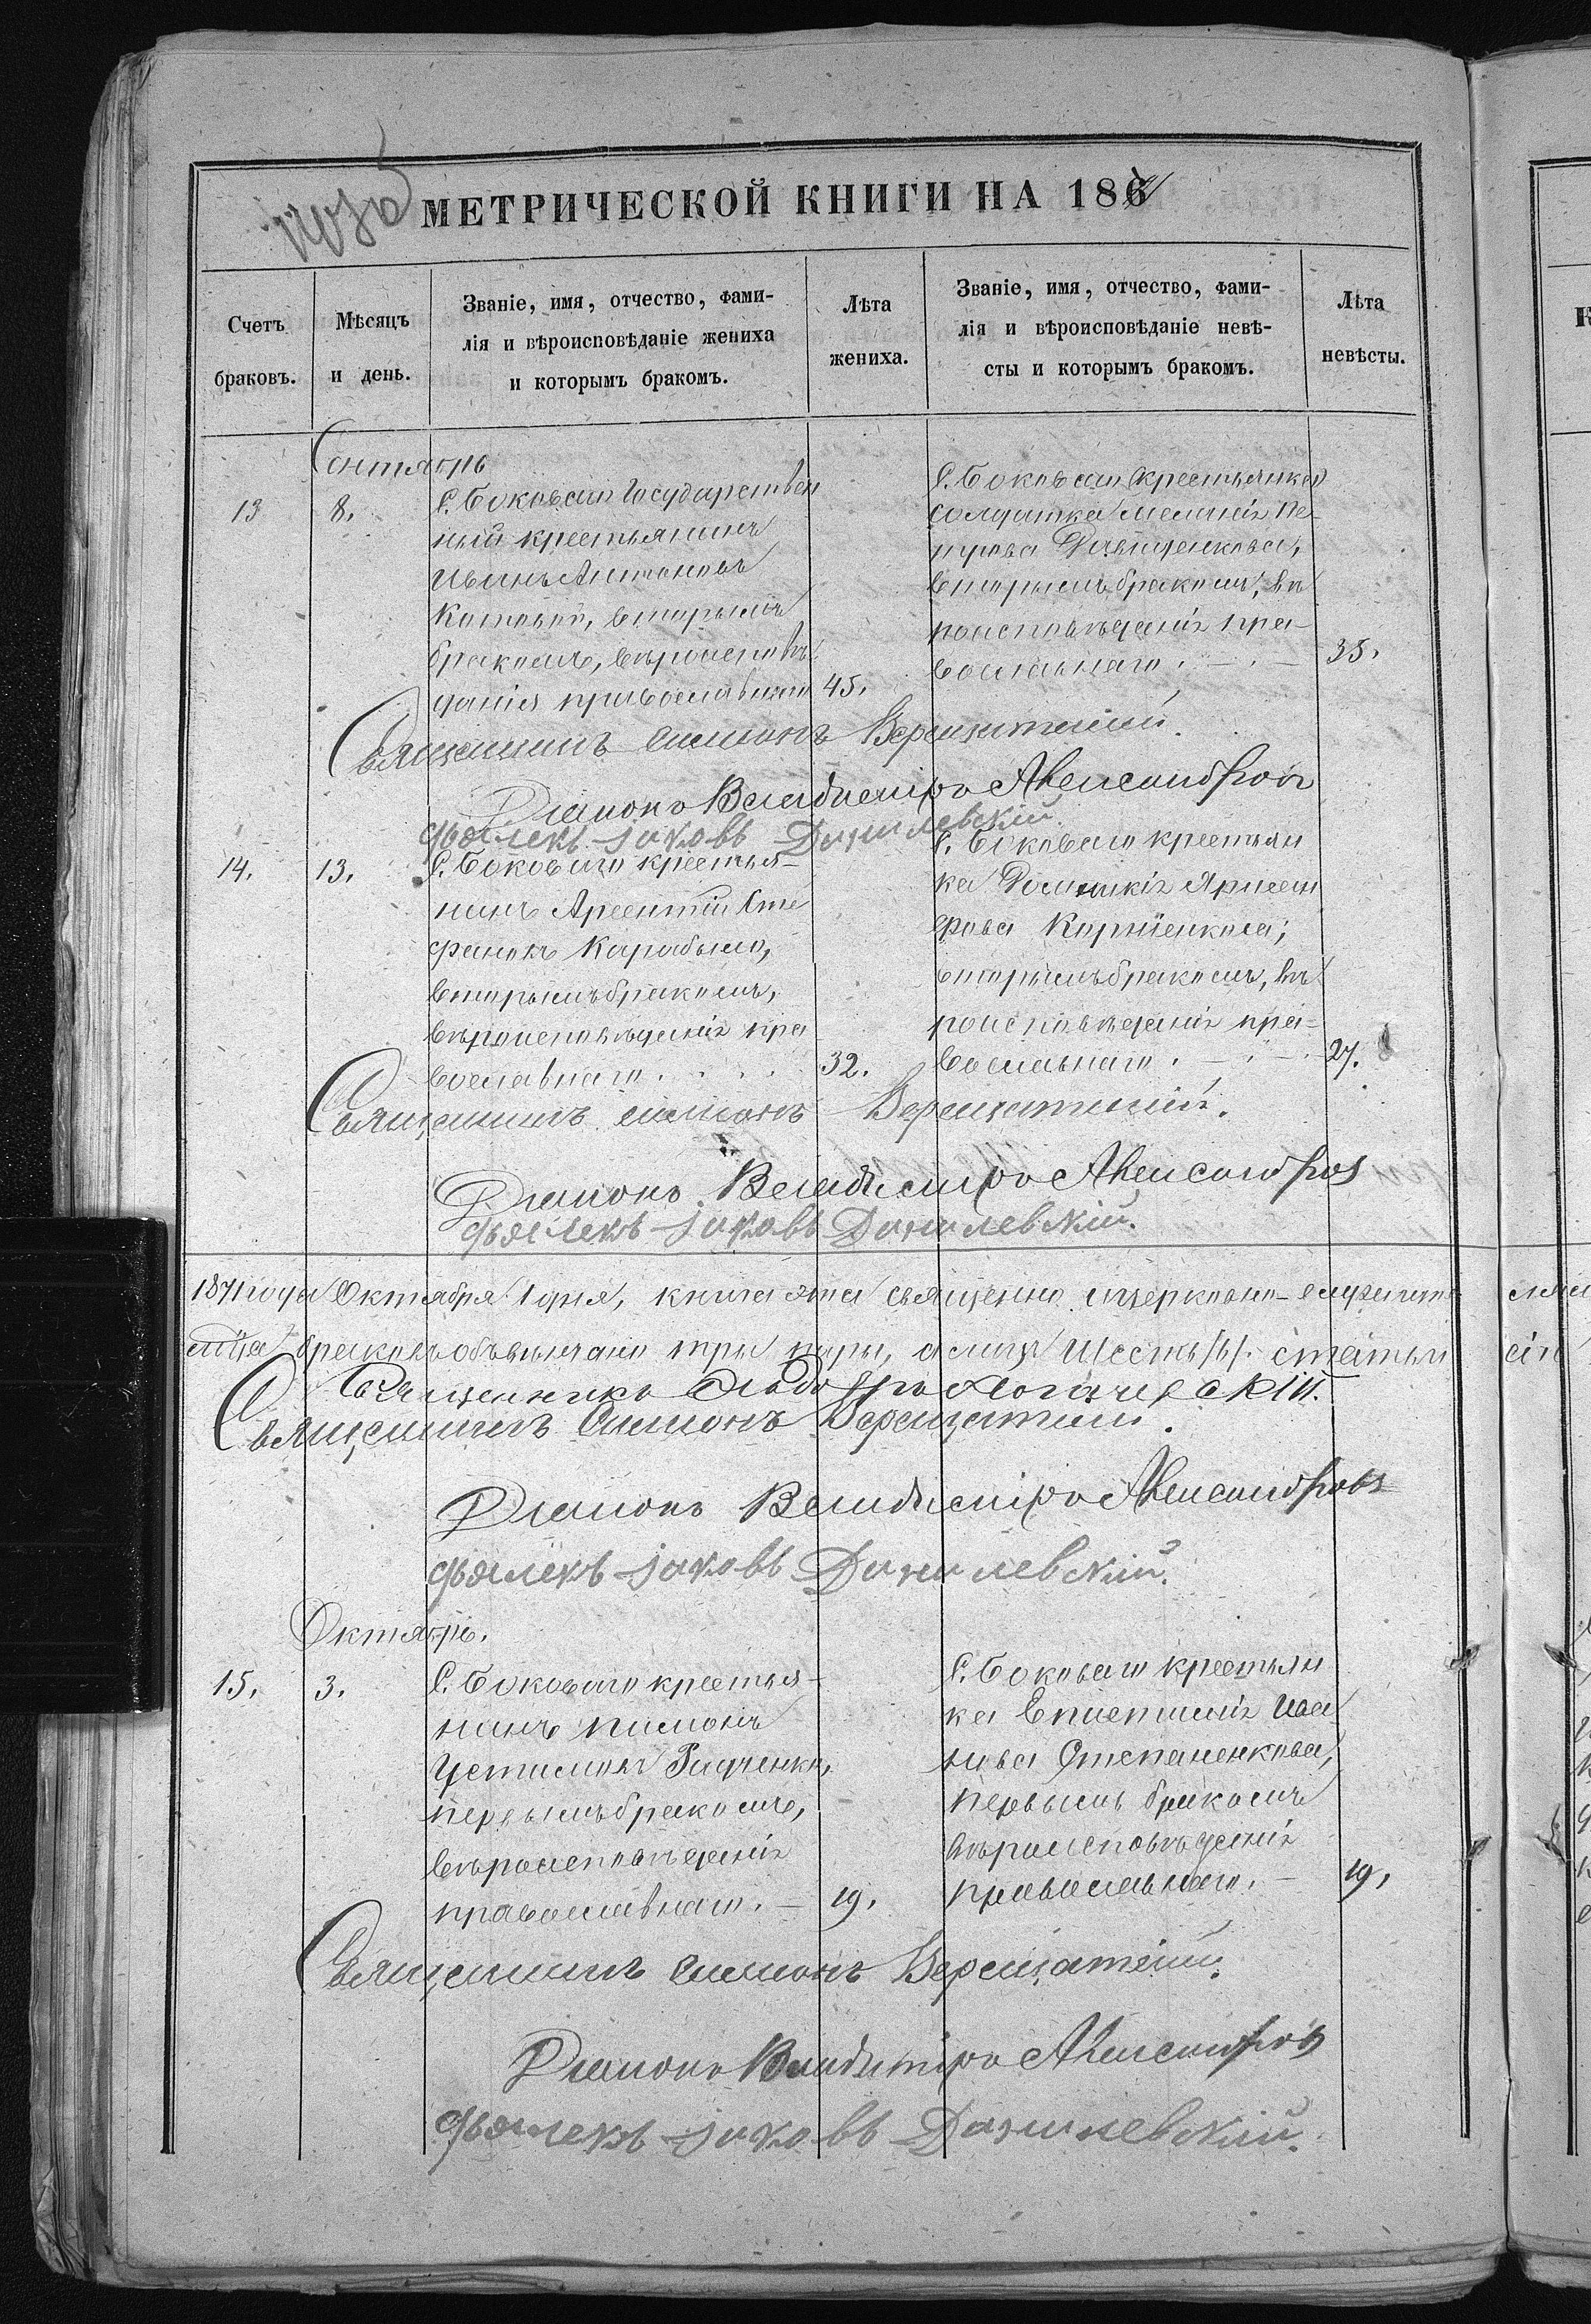 МЕТРИЧЕСКОЙ КНИГИ НА 186
Счетъ браковъ.
Мѣсяцъ и день.
Званіе, имя, отчество, фами-
лія и вѣроисповѣданіе жениха
и которымъ бракомъ.
Лѣта жениха.
Званіе, имя, отчество, фами-
лія и вѣроисповѣданіе невѣ-
сты и которымъ бракомъ.
Лѣта невѣсты.
Сентябрь
13
8.
С. Боковаго Государствен
ный крестьянинъ
Иванъ Антоновъ
вторымъ
бракомъ, вѣроисповѣ
данія православнаго
45.
С. Боковаго крестьянка
солдатка Меланія Пе-
трова
вторымъ бракомъ, вѣ
роисповѣданія пра-
вославнаго. — . —
35.
Священникъ Симонъ Верещатскій.
Діаконъ Владиміръ Александровъ
Іаковъ Данилевскій.
14.
13.
С. Боковаго крестья-
нинъ Арсентій Сте
фановъ Карабыло,
вторымъ бракомъ,
вѣроисповѣданія пра
вославнаго. . . .
32.
С. Боковаго крестьян
ка Домникія
Корніенкова;
вторымъ бракомъ, вѣ
роисповѣданія пра-
вославнаго. — . — .
27.
Священникъ Симонъ Верещатскій.
Діаконъ Владиміръ Александровъ
Іаковъ Данилевскій.
1871 года Октября 1 дня, книга эта священно и церковно-служител
браковъ обвѣнчано три пары, а всѣхъ шесть /6/. статьи
Священникъ
Священникъ Симонъ Верещатскій.
Діаконъ Владиміръ Александровъ
Іаковъ Данилевскій.
Октябрь.
15.
3.
С. Боковаго крестья-
нинъ Пименъ
Устимовъ Радченко,
первымъ бракомъ,
вѣроисповѣданія
православнаго. —
19.
С. Боковаго крестьян
ка Епистимія Ива
нова Степаненкова,
первымъ бракомъ
вѣроисповѣданія
православнаго. —
19.
Священникъ Симонъ Верещатскій.
Діаконъ Владиміръ Александровъ
Іаковъ Данилевскій.